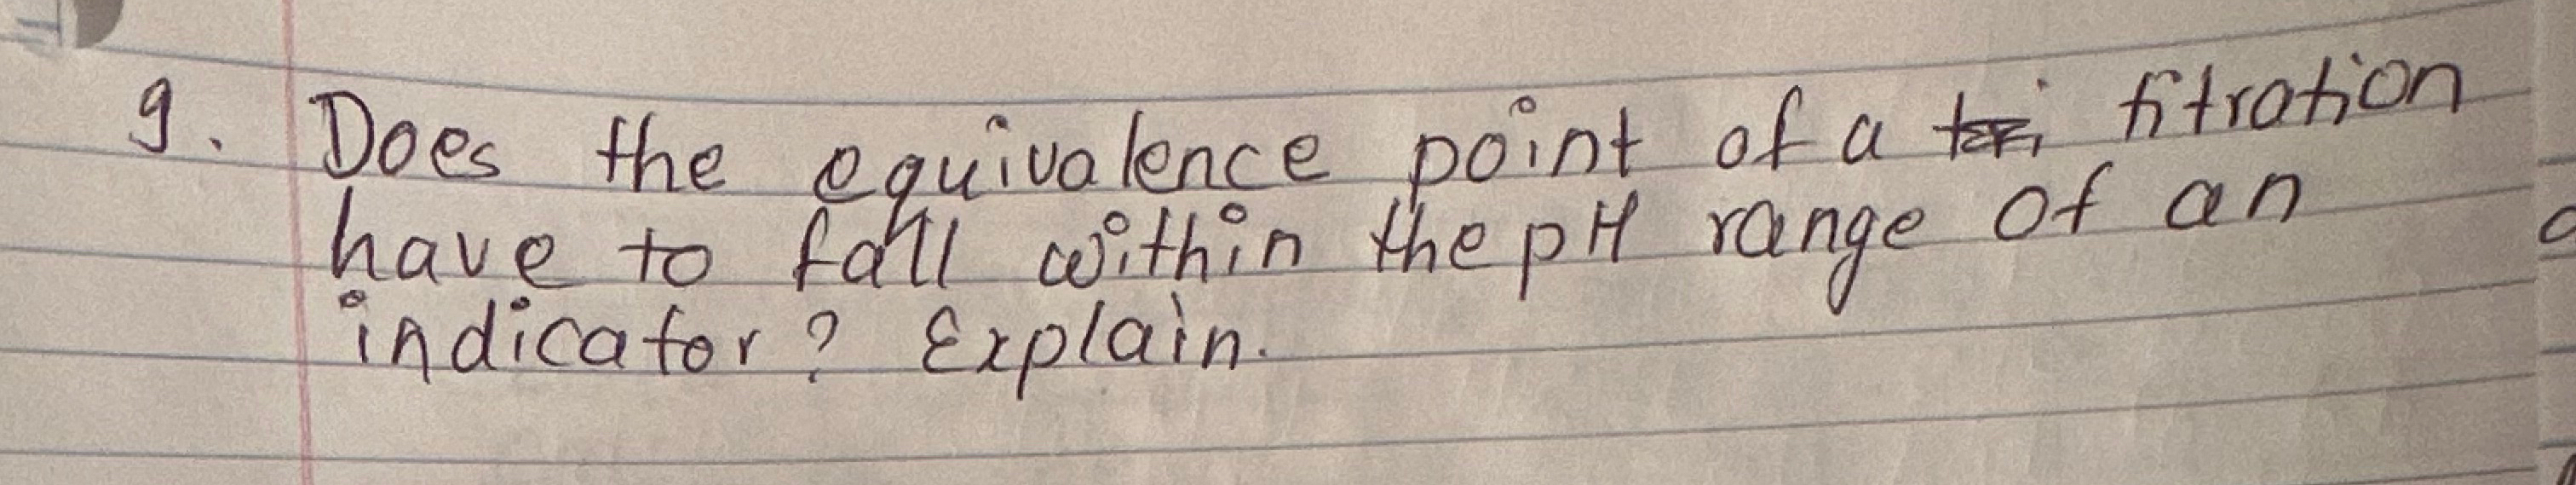 9. Does the equivalence point of a titration
have to fall within the pH range of an
indicator? Explain.